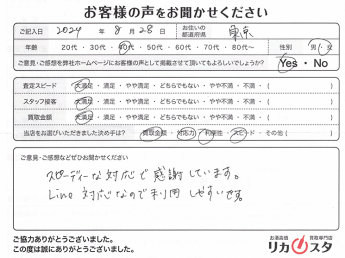 お客様の声をお聞かせください
ご記入日 2024年 8月 28日 お住いの都道府県 東京
年齢 20代・30代・40代・50代・60代・70代・80代〜 性別 男・女
ご意見・ご感想を弊社ホームページにお客様の声として掲載させて頂いてもよろしいでしょうか? Yes・No
査定スピード 大満足・満足・やや満足・どちらでもない・やや不満・不満・( )
スタッフ接客 大満足・満足・やや満足・どちらでもない・やや不満・不満・( )
買取金額 大満足・満足・やや満足・どちらでもない・やや不満・不満・( )
当店をお選びいただきました決め手は? 買取金額・対応力・利便性・スピード・その他( )
ご意見・ご感想などぜひお聞かせください
スピーディーな対応で感謝しています。
Line 対応なので利用しやすいです。
ご協力ありがとうございました。
この度は誠にありがとうございました。
お酒高価買取専門店
リカスタ